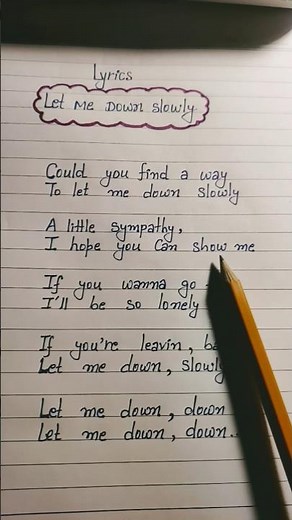 Lyrics
Let Me Down Slowly
Could you find a way
To let me down slowly
A little sympathy,
I hope you Can show me
If you wanna go
I'll be so lonely
If you're leavin,
Let me down, Slowly
Let me down, down
Let me down, down.